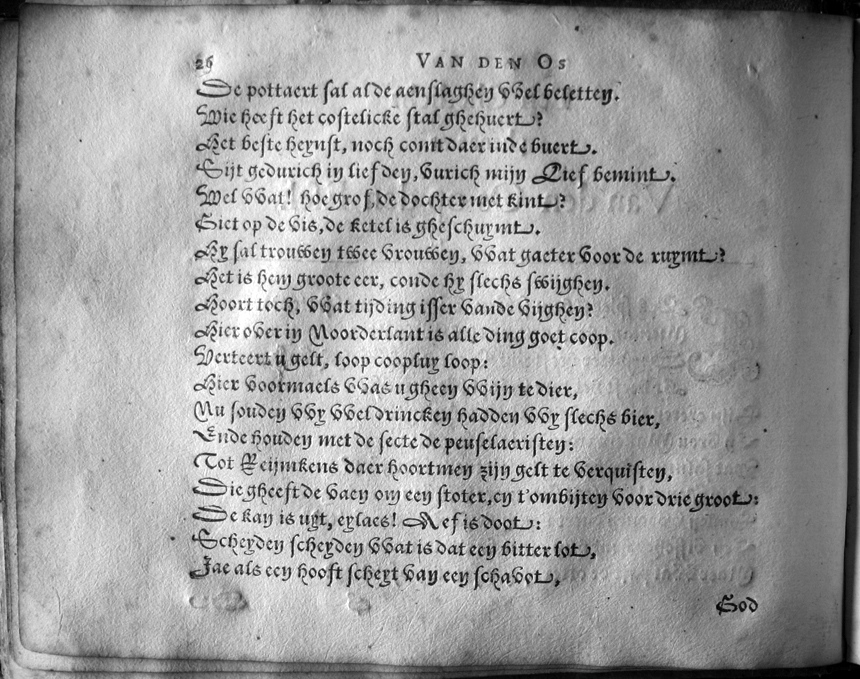 26 VAN DEN OS
De pottaert sal al de aenslaghen VVel beletten.
Wie heeft het costelicke stal ghehuert?
Het beste heynst, noch comt daer inde buert.
Sijt gedurich in liefden, vurich mijn Lief bemint.
Wel VVat! hoe grof, de dochter met kint?
Siet op de vis, de ketel is gheschuymt.
Hy sal trouwen twee vrouwen, VVat gaeter voor de ruymt?
Het is hem groote eer, conde hy slechs swijghen.
Hoort toch, VVat tijding isser vande vijghen?
Hier over in Noorderlant is alle ding goet coop.
Verteert u gelt, loop coopluy loop:
Hier voormaels VVas u gheen VVijn te dier,
Nu souden VVy VVel drincken hadden VVy slechs bier,
Ende houden met de secte de peuselaeristen:
Tot Reijmkens daer hoortmen zijn gelt te verquisten,
Die gheeft de vaen om een stoter, en t'ombijten voor drie groot:
De kan is uyt, eylaes! Aef is doot:
Scheyden scheyden VVat is dat een bitter lot,
Jae als een hooft scheyt van een schavot,
God